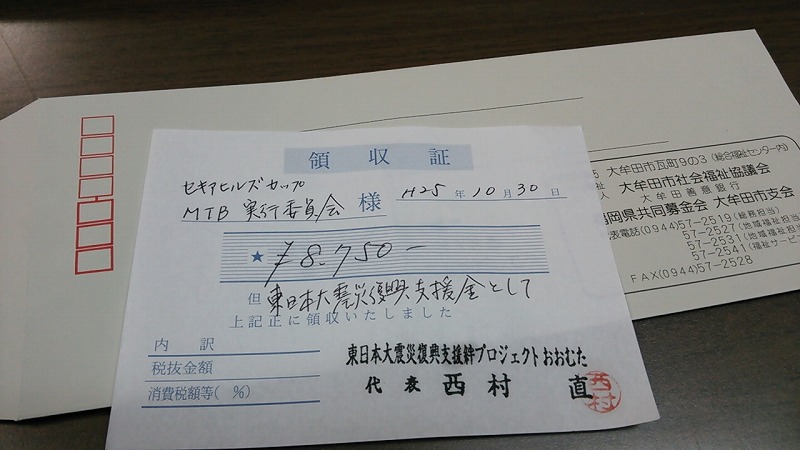 領収証
セキアヒルズカップ
MTB 実行委員会 様 H25年10月30日
★ ¥8,750-
但 東日本大震災復興支援金として
上記正に領収いたしました
内訳
税抜金額
消費税額等( %)
東日本大震災復興支援絆プロジェクトおおむた
代表 西村 直
西村
5 大牟田市瓦町9の3(総合福祉センター内)
大牟田市社会福祉協議会
人 大牟田善意銀行
岡県共同募金会 大牟田市支会
表電話(0944)57-2519(総務担当)
57-2527(地域福祉担当
57-2531(地域福祉担
57-2541(福祉サービ
FAX(0944)57-2528